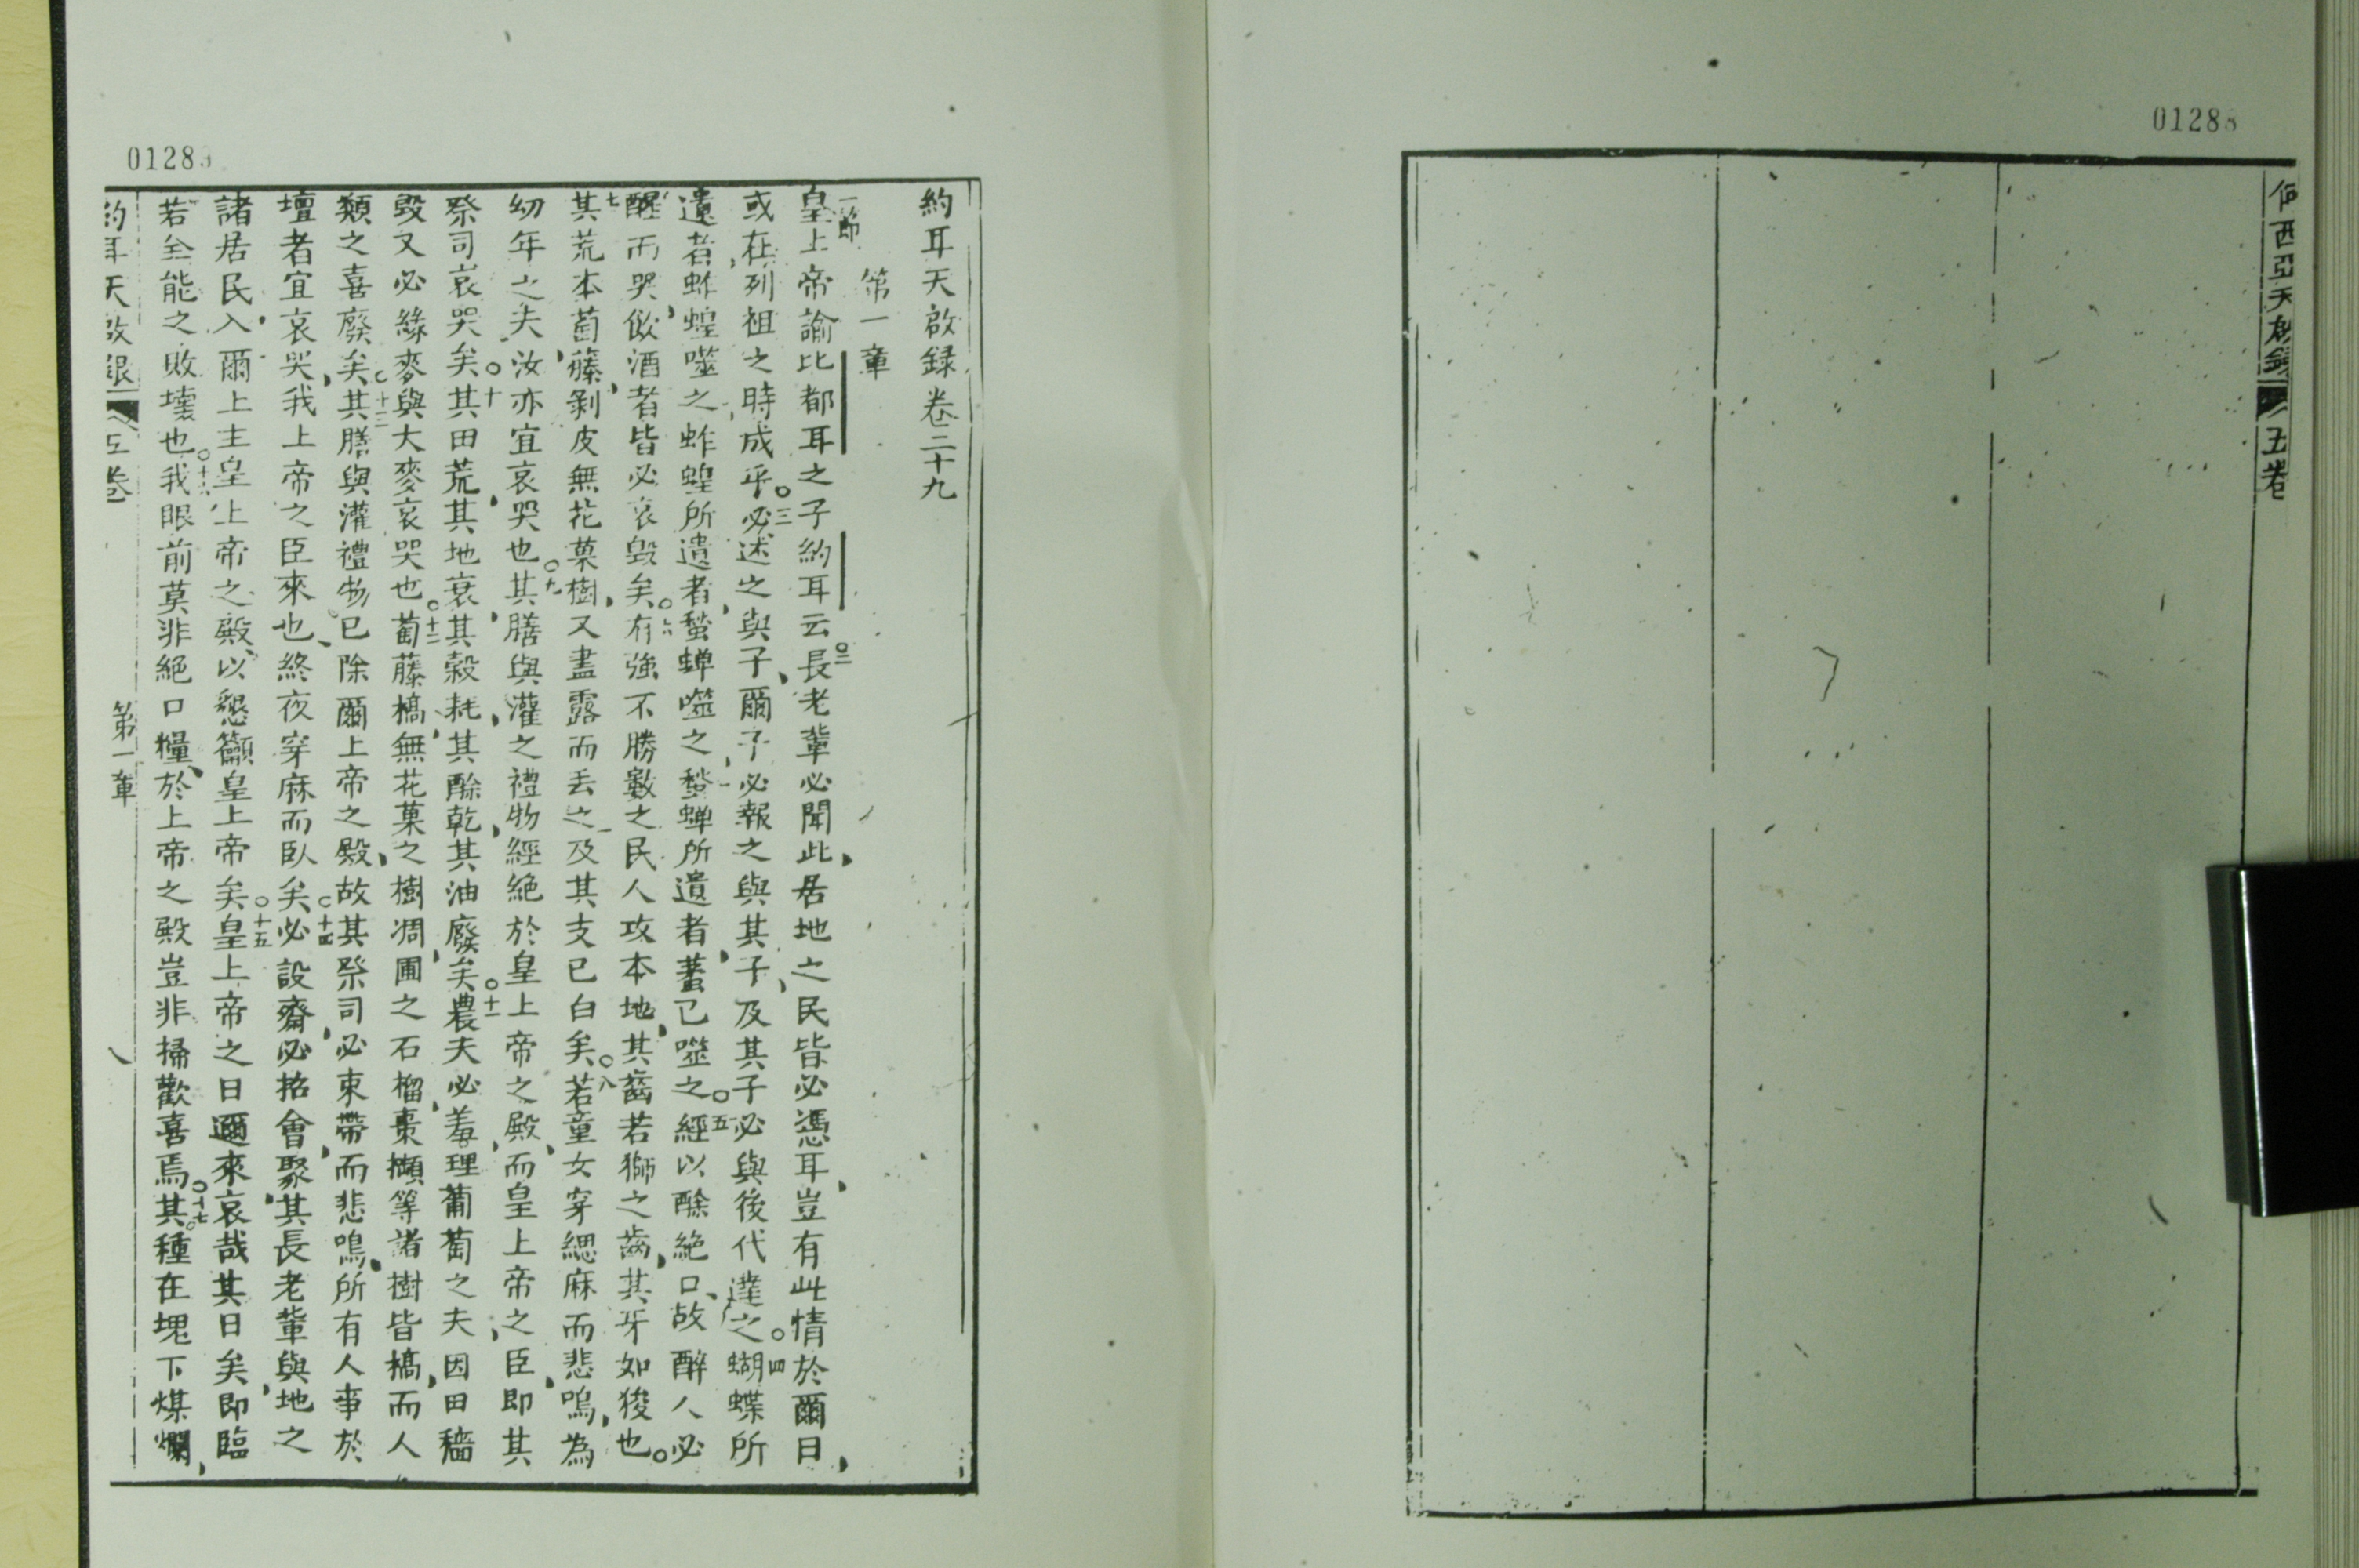 01288
何西亞天啟錄 五卷
01283
約耳天啟録卷二十九
第一章
一節皇上帝諭比都耳之子約耳云○二長老輩必聞此居地之民皆必憑耳豈有此情於爾日
或在列祖之時成乎○三必述之與子爾子必報之與其子及其子必與後代達之○四蝴蝶所
遺者蚱蝗噬之蚱蝗所遺者蝥蟬噬之蝥蟬所遺者蠹已噬之○五經以酴絶口故醉人必
醒而哭飲酒者皆必哀毀矣○六有強不勝數之民人攻本地其齒若獅之齒其牙如狻也○
七其荒本萄藤剝皮無花菓樹又盡露而丢之及其支已白矣○八若童女穿緦麻而悲嗚為
幼年之夫汝亦宜哀哭也○九其膳與灌之禮物經絕於皇上帝之殿而皇上帝之臣即其
祭司哀哭矣○十其田荒其地衰其榖耗其酴乾其油廢矣○十一農夫必羞理葡萄之夫因田穡
毀又必緣麥與大麥哀哭也○十二萄藤槁無花菓之樹凋圃之石榴棗擷等諸樹皆槁而人
類之喜廢矣○十三其膳與灌禮物已除爾上帝之殿故其祭司必束帶而悲嗚所有人事於
壇者宜哀哭我上帝之臣來也終夜穿麻而臥矣○十四必設齋必招會聚其長老輩與地之
諸居民入爾上主皇上帝之殿以懇籲皇上帝矣○十五皇上帝之日邇來哀哉其日矣即臨
若全能之敗壞也○十六我眼前莫非絕口糧於上帝之殿豈非掃歡喜焉○十七其種在塊下煤爛
約耳天啟錄 五卷 第一章